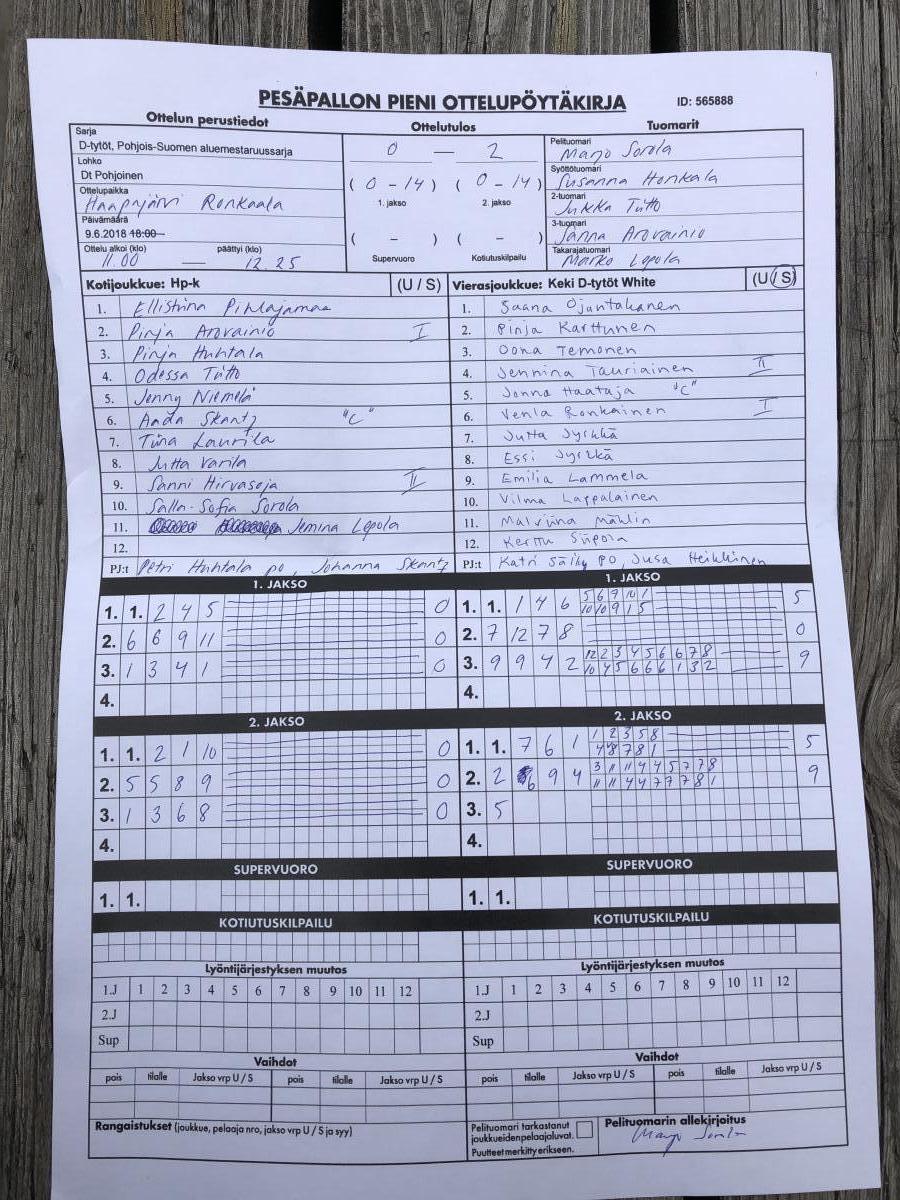 PESÄPALLON PIENI OTTELUPÖYTÄKIRJA
ID: 565888
Ottelun perustiedot
Ottelutulos
Tuomarit
Sarja
D-tytöt, Pohjois-Suomen aluemestaruussarja
Lohko
Dt Pohjoinen
Ottelupaikka
Haapajärvi Ronkaala
Päivämäärä
9.6.2018 18:00
Ottelu alkoi (klo) päättyi (klo)
11.00 — 12.25
0 — 2
( 0 - 14 ) ( 0 - 14 )
1. jakso 2. jakso
( - ) ( - )
Supervuoro Kotiutuskilpailu
Pelituomari
Marjo Sorola
Syöttötuomari
Susanna Honkala
2-tuomari
Jukka Tutto
3-tuomari
Janna Arovainio
Takarajatuomari
Marko Lepola
Kotijoukkue: Hp-k (U / S)
1. Ellistiina Pihlajamaa
2. Pinja Arovainio I
3. Pinja Huhtala
4. Odessa Tutto
5. Jenny Niemelä
6. Aada Skantz "C"
7. Tiina Laurila
8. Jutta Varila
9. Sanni Hirvasoja II
10. Salla-Sofia Sorola
11. Jemina Lepola
12.
PJ:t Petri Huhtala po, Johanna Skantz
Vierasjoukkue: Keki D-tytöt White (U / S)
1. Saana Ojuntakanen
2. Pinja Karttunen
3. Oona Temonen
4. Jennina Tauriainen II
5. Jonna Haataja "C"
6. Venla Ronkainen I
7. Jutta Jyrkkä
8. Essi Jyrkkä
9. Emilia Lammela
10. Vilma Lappalainen
11. Malviina Mahlin
12. Kerttu Siipola
PJ:t Katri Sälky PO, Jusa Heikkinen
1. JAKSO
1. 1. 2 4 5 0
2. 6 8 9 11 0
3. 1 3 4 1 0
4.
1. JAKSO
1. 1. 1 4 6 5 6 9 10 1 5
10 10 9 1 5
2. 7 12 7 8 0
3. 9 9 4 2 12 2 3 4 5 6 6 7 8 9
10 4 5 6 6 6 1 3 2
4.
2. JAKSO
1. 1. 2 1 10 0
2. 5 5 8 9 0
3. 1 3 6 8 0
4.
2. JAKSO
1. 1. 7 6 1 1 2 3 5 8 5
4 8 7 8 1
2. 2 6 9 4 3 11 11 4 4 5 7 7 8 9
11 11 4 4 7 7 7 8 1
3. 5
4.
SUPERVUORO
1. 1.
SUPERVUORO
1. 1.
KOTIUTUSKILPAILU
KOTIUTUSKILPAILU
Lyöntijärjestyksen muutos
1.J 1 2 3 4 5 6 7 8 9 10 11 12
2.J
Sup
Lyöntijärjestyksen muutos
1.J 1 2 3 4 5 6 7 8 9 10 11 12
2.J
Sup
Vaihdot
pois tilalle Jakso vrp U / S pois tilalle Jakso vrp U / S
Vaihdot
pois tilalle Jakso vrp U / S pois tilalle Jakso vrp U / S
Rangaistukset (joukkue, pelaaja nro, jakso vrp U / S ja syy)
Pelituomari tarkastanut
joukkueidenpelaajaluvat.
Puutteet merkitty erikseen.
Pelituomarin allekirjoitus
Marjo Sorola